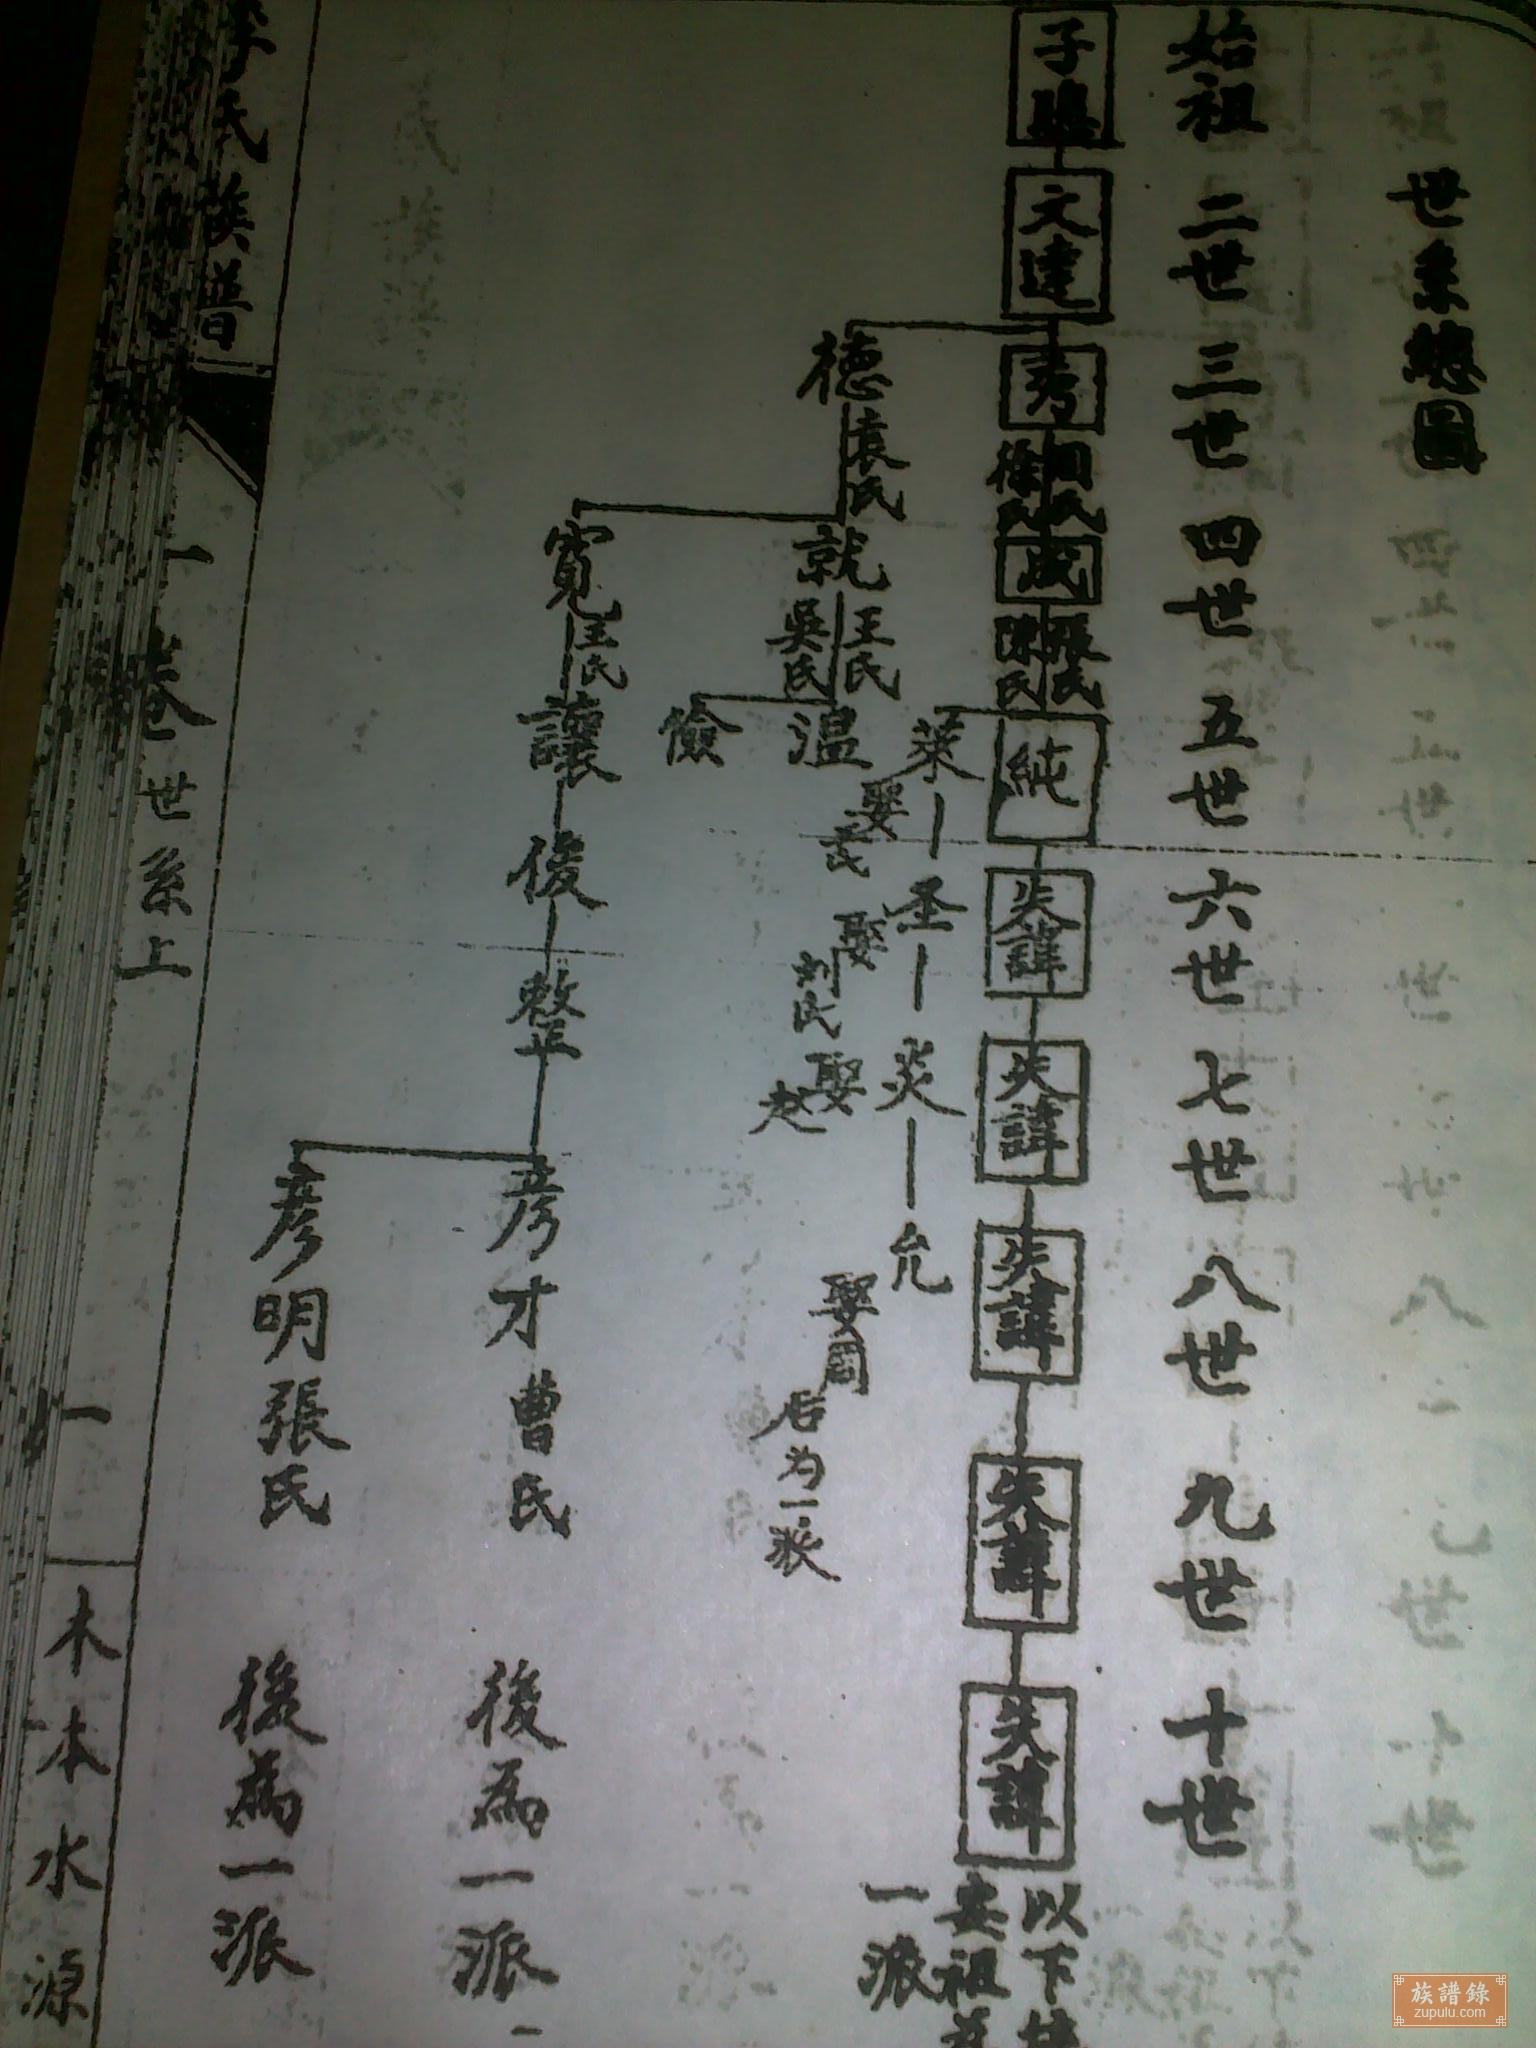 世系總圖
始祖 二世 三世 四世 五世 六世 七世 八世 九世 十世
子
文達
秀
徐氏
成
張氏
陳氏
純
失諱
失諱
失諱
失諱
失諱
以下
安祖
一派
萊
娶
氏
圣
娶
刘氏
炎
娶
赵
允
娶周
后为一派
德
袁氏
就
王氏
吳氏
温
儉
寬
王氏
讓
俊
整
彦才
曹氏
後為一派
彦明
張氏
後為一派
李氏族譜
一卷
世系上
一
木本水源
族譜錄
zupulu.com